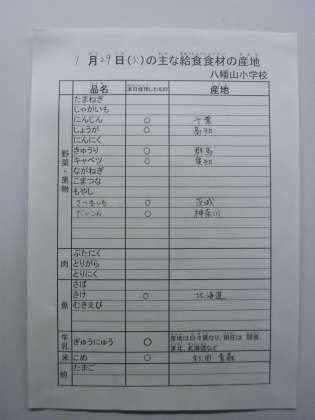 1月29日(火)の主な給食食材の産地
八幡山小学校
品名 本日使用したもの 産地
野菜・果物
たまねぎ
じゃがいも
にんじん ○ 千葉
しょうが ○ 高知
にんにく
きゅうり ○ 群馬
キャベツ ○ 愛知
ながねぎ
こまつな
もやし
さつまいも ○ 茨城
だいこん ○ 神奈川
肉
ぶたにく
とりがら
とりにく
魚
さば
さけ ○ 北海道
むきえび
牛乳
ぎゅうにゅう ○ 産地は日々異なり、現在は 関東、
東北、北海道など
米 こめ ○ 秋田・青森
他 たまご